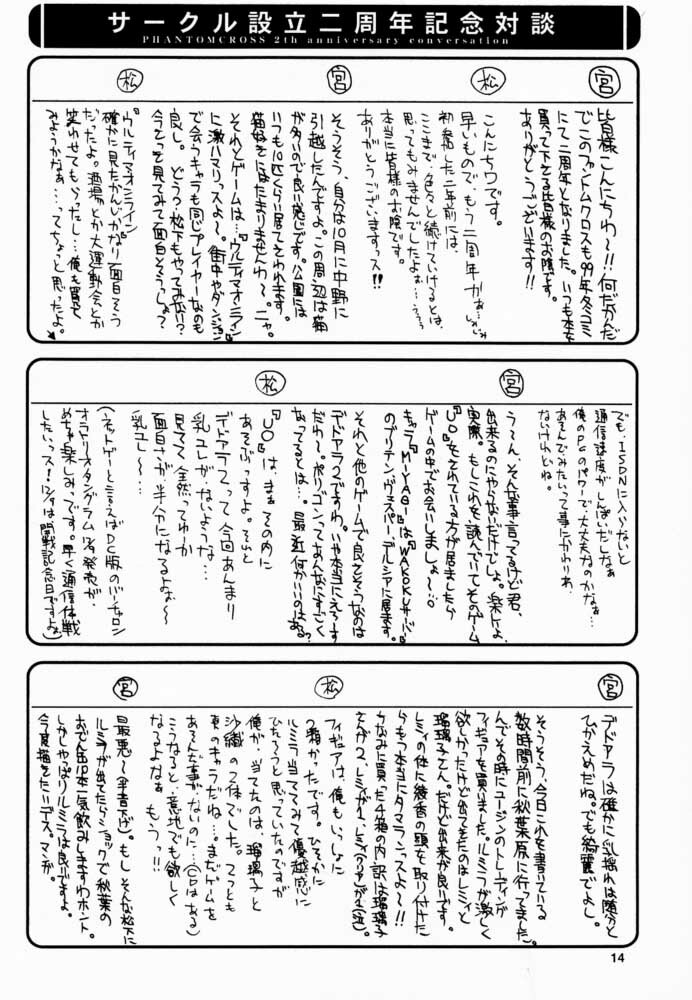 サークル設立二周年記念対談
PHANTOMCROSS 2th anniversary conversation
宮
皆様こんにちわ〜!!何だかんだ
でこのファントムクロスも99年冬コミ
にて二周年となりました。いつも本を
買って下さる皆様のお陰です。
ありがとうございます!!
松
こんにちワです。
早いもので、もう二周年かぁ…しみじみ
初参加した二年前には、
ここまで色々と続けていけるとは、
思ってもみませんでしたよぉ…
本当に皆様のお陰です。
ありがとうございますっス!!
宮
そうそう、自分は10月に中野に
引越したんですよ。この周辺は猫
が多いので良い感じです。公園には
いつも10匹くらい居てそそわれます。
猫好きにはたまりませんわ〜。ニャ。
それとゲームは…『ウルティマオンライン』
に激ハマリっスよ〜。街中やダンジョン
で会うキャラも同じプレイヤーなのも
良し。どう?松下もやってみない?
今そっと見てみて面白そうっしょ?
松
『ウルティマオンライン』
確かに見たかんじかなり面白そう
だったよ。酒場とか大運動会とか
笑わせてもらったし…俺も買って
みようかなぁ…ってちょっと思ったよ。
でも、ISDNに入らないと
通信速度がしんぱいだしなぁ
俺のPCのパワーで大丈夫なのかなぁ…
あそんでみたいって事にかわりわ、
ないけれどね。
宮
う〜ん、そんな事言ってるけど君、
出来るのにやらないだけでしょ。楽しいよ
実際。もしこれを読んでいてそのゲーム
『UO』をされている方が居ましたら
ゲームの中でお会いしましょ〜!
キャラ『MIYABI』は『WAKOKUサーバ』
のブリテン、ヴェスパー、デルシアに居ます。
それと他のゲームで良さそうなのは
デドアラ2ですわ。いや本当にえらーす
だわ〜。ポリゴンってあんなにすごく
なってるとは…。最近何かいいのはある?
松
『UO』は、まぁその内に
あそぶっすよ。それと
デドアラ2って今回あんまり
乳ユレがないような…
見てて全然ってゆーか
面白さが半分になるよぉ〜
乳ユレ〜…
(ネットゲーと言えばDC版のバーチャロン
オラトリオタングラム12/9発売が、
めちゃ楽しみっです。早く通信体戦
したいっス!12/9は開戦記念日ですよぉ)
宮
デドアラは確かに乳揺れは随分と
ひかえめだね。でも綺麗でよし。
そうそう、今日これを書いている
数時間前に秋葉原に行ってました。
んでその時にユージンのトレーディング
フィギュアを買いました。ルミラが激しく
欲しかったけど出てきたのはレミィと
瑠璃子さん。だけど出来が良いです。
レミィの体に綾香の頭を取り付けた
らもう本当にタマランっスよ〜!!
ちなみに買った4箱の内訳は瑠璃子
さんが2、レミィが1、レミィ(カラー)が1(泣)。
松
フィギュアは、俺もいっしょに
2箱かったです。ひそかに
ルミラ当てててみて優越感に
ひたろうと思っていたのですが
俺が、当てたのは、瑠璃子と
沙織の2体でした。てっとも
東のキャラだね…まだゲームを
あそんだ事がないのに…(CDはある)
こうなると、意地でも欲しく
なるよなぁ もうっ!!
宮
最悪〜(半音下げ)。もしそんな松下に
ルミラが出てたらショックで秋葉の
おでん缶10本一気飲みしますわホント。
しかしやっぱりルミラは良いですよ。
今度描きたいデス。マジが。
14